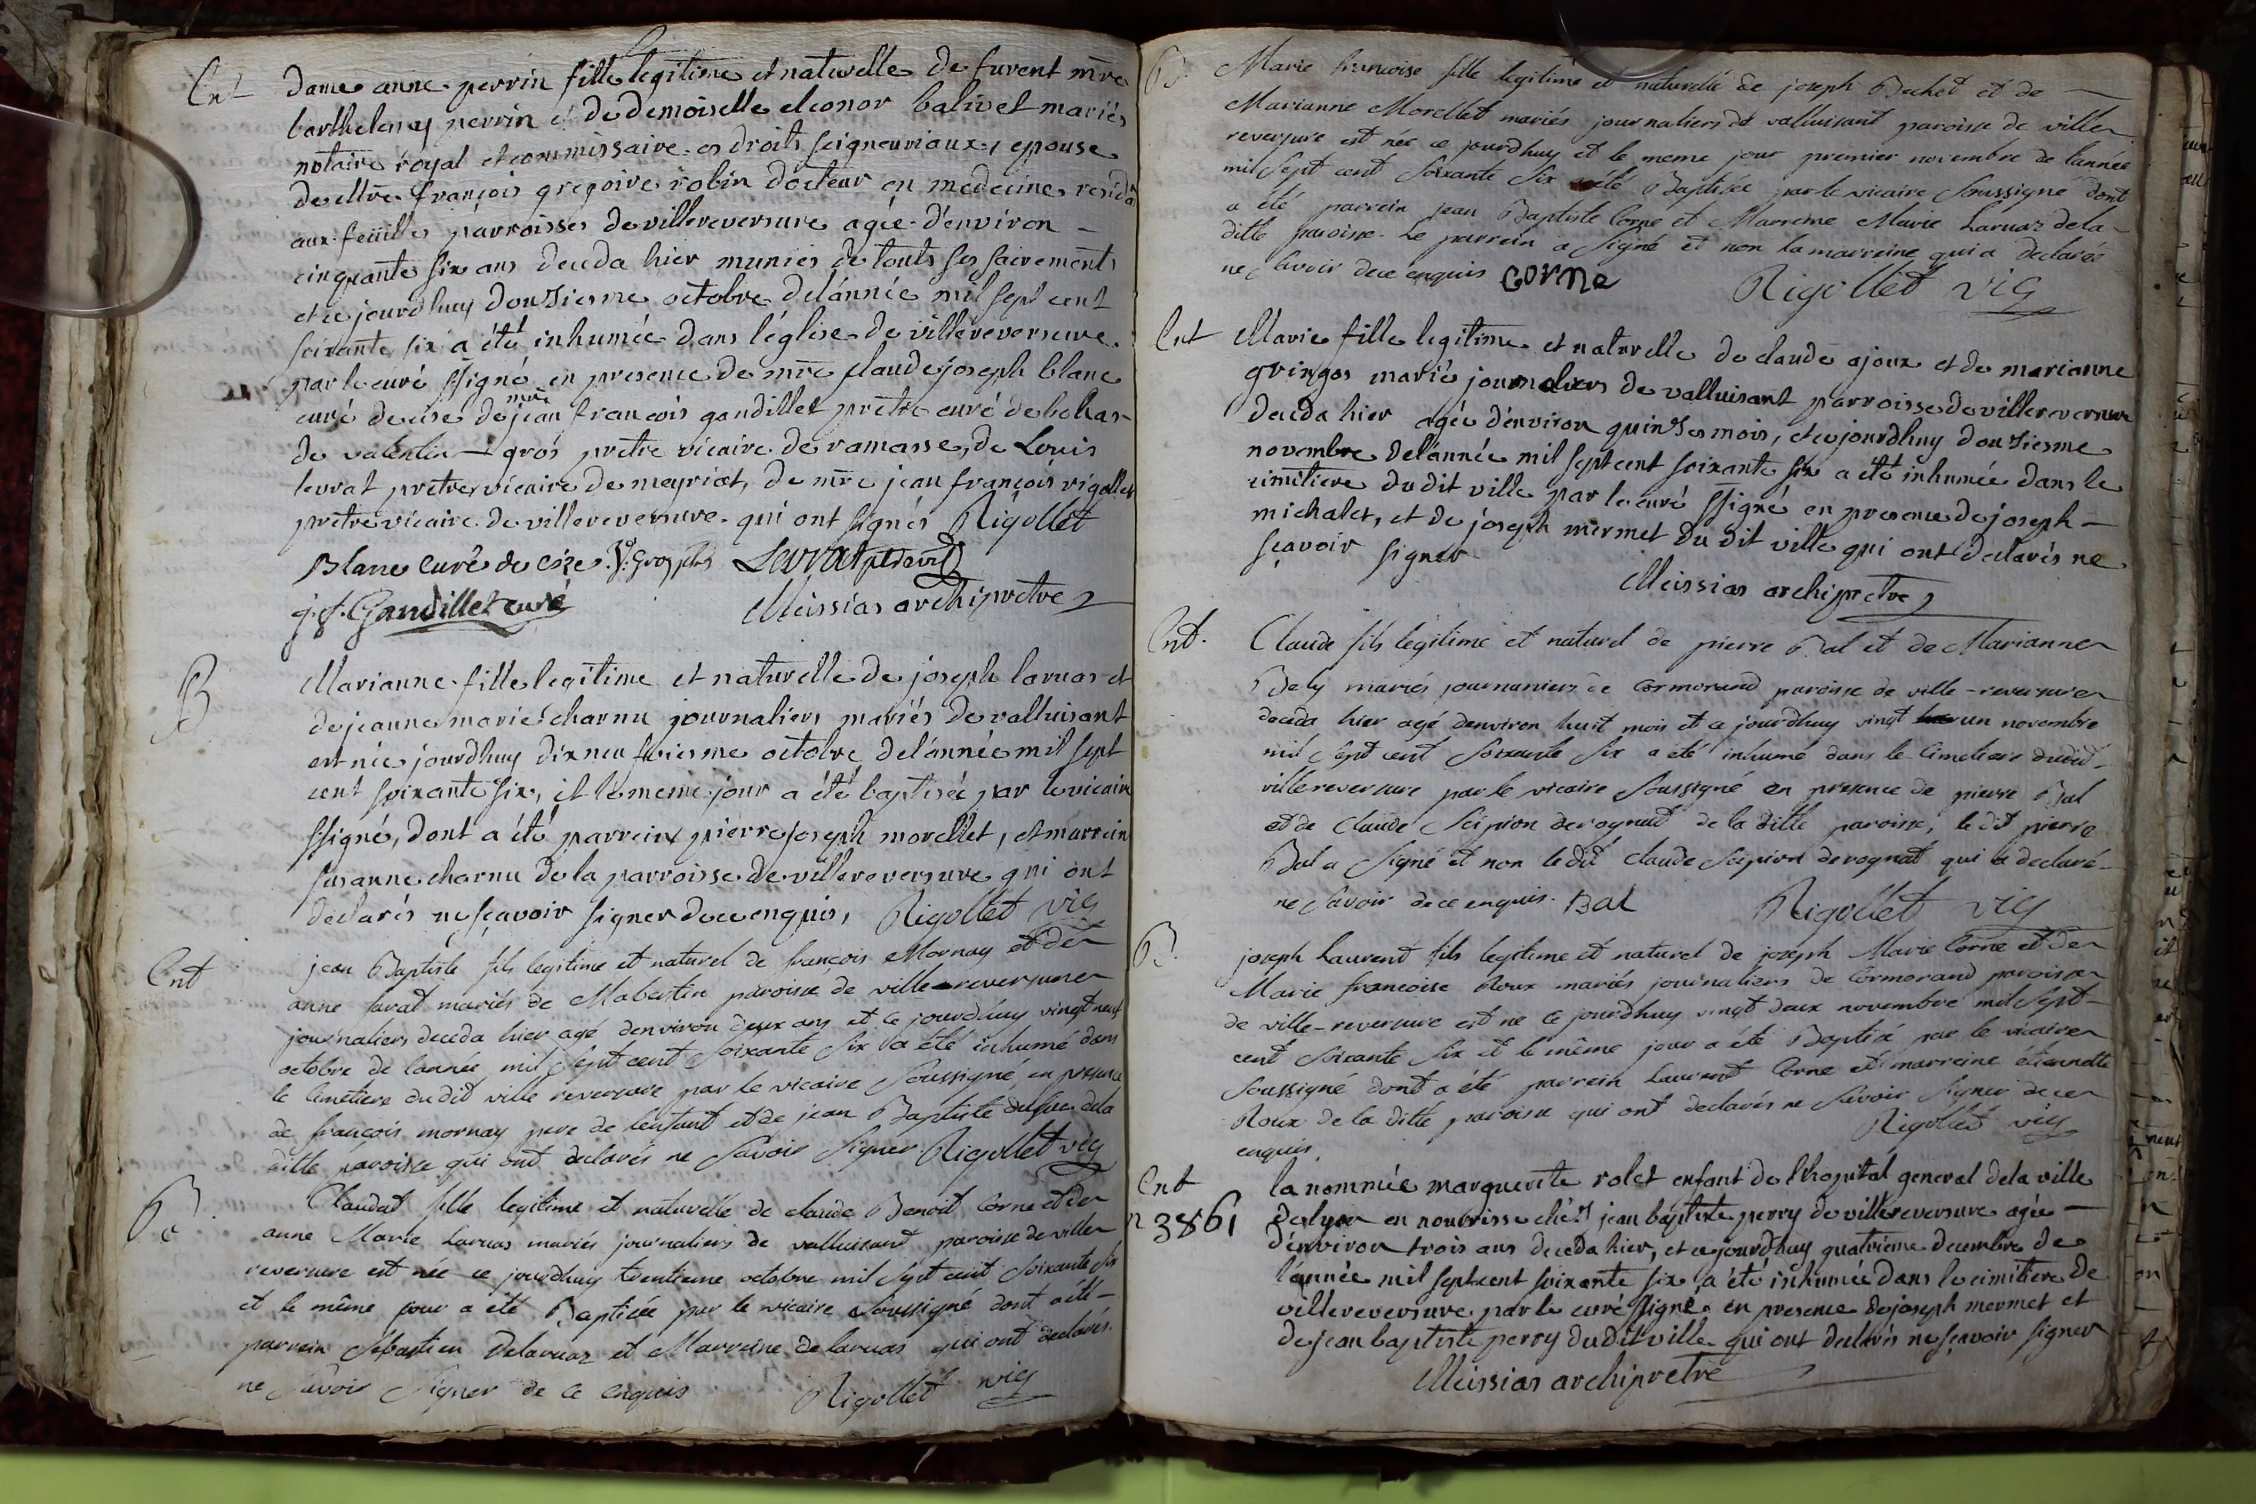 Ent dame anne perrin fille legitime et naturelle de furent mre
barthelemy perrin et de demoiselle eleonor balivet mariés
notaire royal et commissaire es droits seigneuriaux, epouse
de mre françois gregoire robin docteur en medecine resid
aux feuilles parroisse de villereversure agée d'environ
cinquante six ans deceda hier munies de touts ses sairements
et ce jourdhuy douziesme octobre de l'année mil sept cent
soixante six a été inhumée dans l'église de villereversure
par le curé ssigné en presence de mre claude joseph blanc
curé de cise de mre jean françois gandillet prêtre curé de bohas
de valentin gros prêtre vicaire de ramasse, de Louis
levrat prêtre vicaire de meyriat, de mre jean françois rigollet
prêtre vicaire de villereversure qui ont signés Rigollet
Blanc curé de cize V. Gros ptre Levrat ptre vic
j. f. Gandillet curé Meissias archiprêtre
B Marianne fille legitime et naturelle de joseph laruas et
de jeanne marie charnu journaliers mariés de valluisant
est née jourdhuy dix neufviesme octobre de l'année mil sept
cent soixante six, et le meme jour a été baptisée par le vicaire
ssigné, dont a été parrein pierre joseph morellet, et marrein
susanne charnu de la parroisse de villereversure qui ont
declarés ne sçavoir signer de ce enquis, Rigollet vic
Ent jean Baptiste fils legitime et naturel de françois Mornay et de
anne savat mariés de Mabestin paroisse de ville reversure
journaliers deceda hier agé denviron deux ans et ce jourdhuy vingt neuf
octobre de lannée mil sept cent soixante six a été inhumé dans
le Cimetiere du dit ville reversure par le vicaire soussigné, en presence
de françois mornay pere de lenfant et de jean Baptiste dela
ditte paroisse qui ont declarés ne savoir signer Rigollet vic
B Claudat fille legitime et naturelle de claude Benoit Corne et de
anne Marie Laruas mariés journaliers de valluisant paroisse de ville
reversure est née ce jourdhuy trentieme octobre mil sept cent soixante six
et le même jour a été Baptisée par le vicaire soussigné dont a été
parrein Sébastien Delaruaz et Marreine delaruas qui ont declarés
ne savoir signer de ce enquis Rigollet vic
B Marie francoise fille legitime et naturelle de joseph Bechet et de
Marianne Morellet mariés journaliers de valluisant paroisse de ville
reversure est née ce jourdhuy et le meme jour premier novembre de lannée
mil sept cent soixante six a été Baptisée par le vicaire soussigné dont
a été parrein jean Baptiste Corne et Marreine Marie Laruaz de la
ditte paroisse. le parrein a signé et non la marreine qui a declarés
ne savoir de ce enquis corne Rigollet vic
Ent Marie fille legitime et naturelle de claude ajoux et de marianne
gringos marié journaliers de valluisant parroisse de villereversure
deceda hier agée d'environ quinze mois, et ce jourdhuy douziesme
novembre de l'année mil sept cent soixante six a été inhumée dans le
cimitiere du dit ville par le curé ssigné en presence de joseph
michalet, et de joseph mermet du dit ville qui ont declarés ne
sçavoir signer
Meissias archiprêtre
Ent. Claude fils legitime et naturel de pierre Bal et de Marianne
Bely mariés journaniers de Cormorand paroisse de ville-reversure
deceda hier agé denviron huit mois et ce jourdhuy vingt un novembre
mil sept cent soixante six a été inhumé dans le Cimetiere dudit
villereversure par le vicaire soussigné en presence de pierre Bal
et de Claude Scipion derognat de la ditte paroisse, le dit pierre
Bal a signé et non le dit claude Scipion derognat qui a declaré
ne savoir de ce enquis. Bal Rigollet vic
B. joseph Laurent fils legitime et naturel de joseph Marie Corne et de
Marie francoise Roux mariés journaliers de Cormorand paroisse
de ville-reversure est né ce jourdhuy vingt deux novembre mil sept
cent soixante six et le même jour a été Baptisé par le vicaire
soussigné dont a été parrein Laurent Corne et marreine étiennette
Roux de la ditte paroisse qui ont declarés ne savoir signer de ce
enquis Rigollet vic
Ent la nommée marguerite rolet enfant de l'hopital general de la ville
n 3861 de lyon en nourrisse chés jean baptiste perry de villereversure agée
d'environ trois ans deceda hier, et ce jourdhuy quatrieme decembre de
l'année mil sept cent soixante six a été inhumée dans le cimitiere de
villereversure par le curé ssigné en presence de joseph mermet et
de jean baptiste perry du dit ville qui ont declarés ne sçavoir signer
Meissias archiprêtre